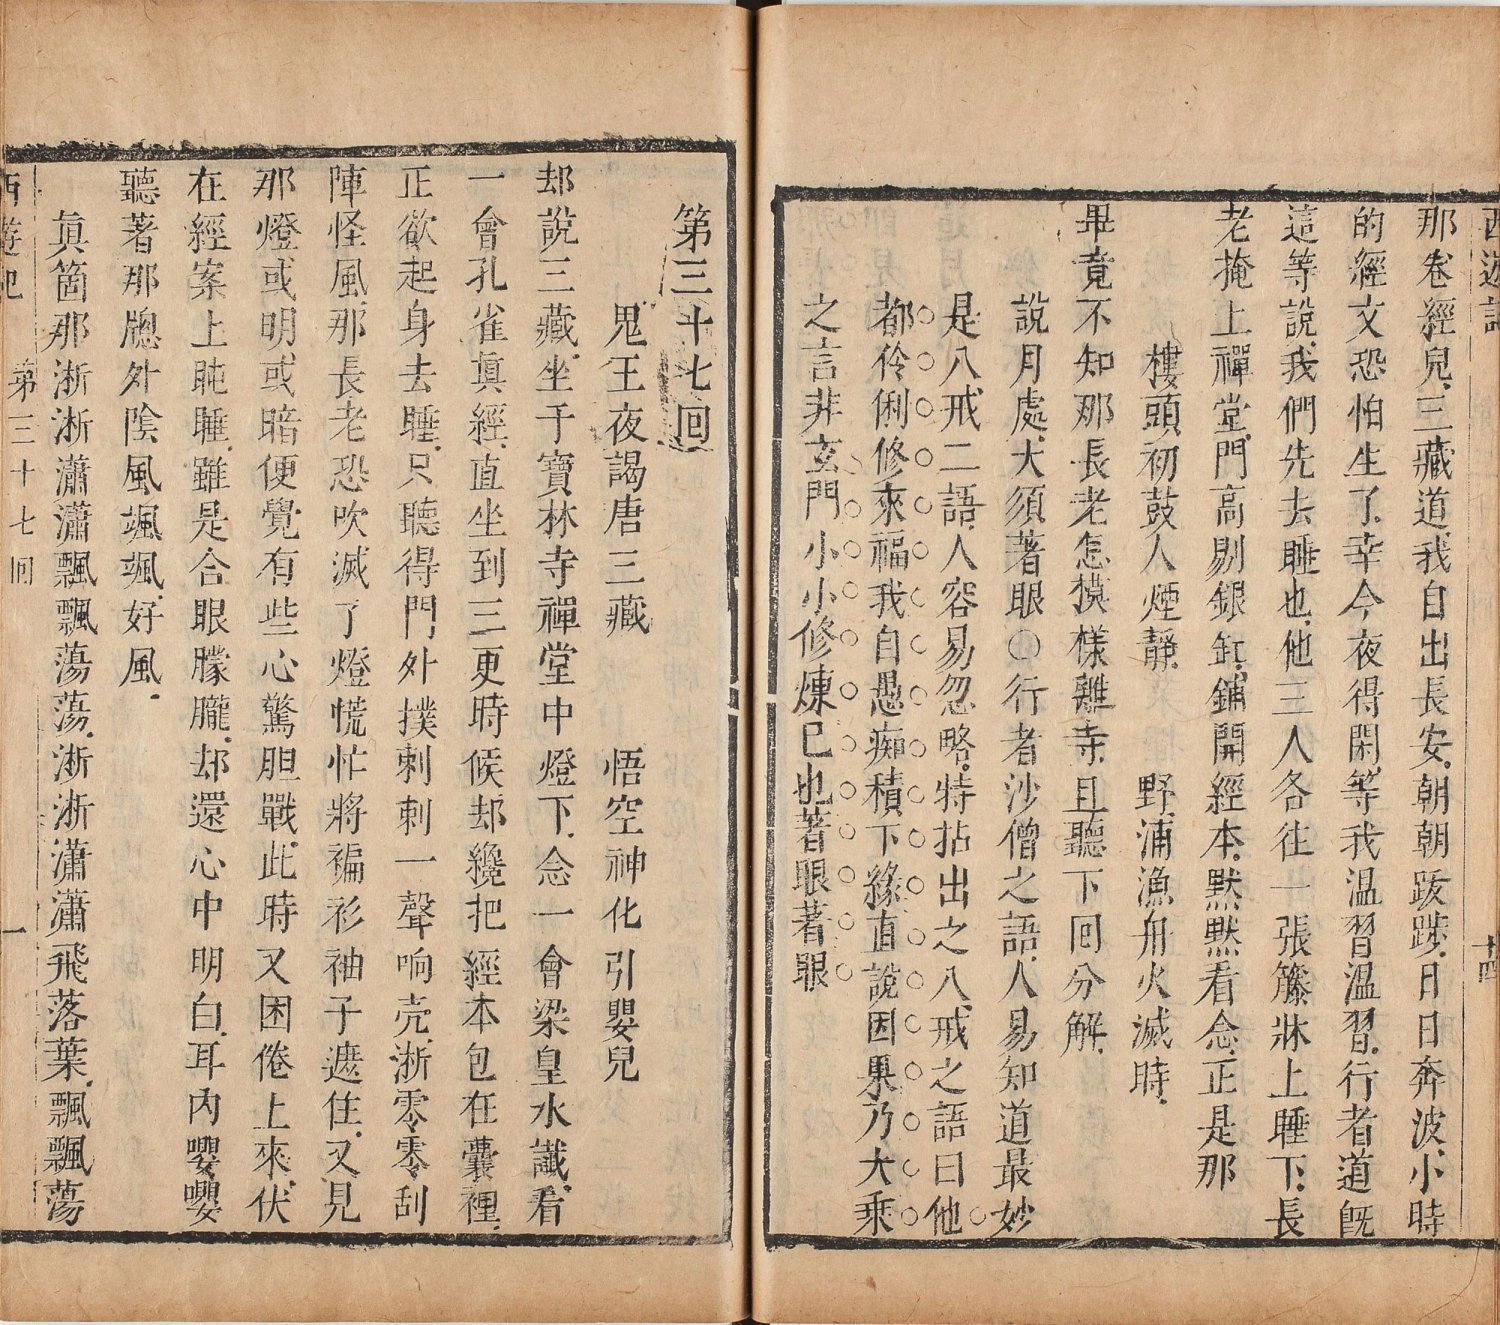 西遊記
十四
那卷經兒三藏道我自出長安朝朝跋踄日日奔波小時
的經文恐怕生了幸今夜得閑等我温習温習行者道旣
這等說我們先去睡也他三人各往一張籐牀上睡下長
老掩上禪堂門高剔銀缸鋪開經本黙黙看念正是那
樓頭初鼓人煙靜　野浦漁舟火滅時
畢竟不知那長老怎模樣離寺且聽下回分解
說月處大須著眼〇行者沙僧之語人易知道最妙
是八戒二語人容易忽略特拈出之八戒之語曰他
都伶俐修來福我自愚痴積下緣直說因果乃大乘
之言非玄門小小修煉已也著眼著眼
第三十七回
鬼王夜謁唐三藏　悟空神化引嬰兒
却說三藏坐于寶林寺禪堂中燈下念一會梁皇水讖看
一會孔雀眞經直坐到三更時候却纔把經本包在囊裡
正欲起身去睡只聽得門外撲剌剌一聲响壳淅零零刮
陣怪風那長老恐吹滅了燈慌忙將褊衫袖子遮住又見
那燈或明或暗便覺有些心驚胆戰此時又困倦上來伏
在經案上盹睡雖是合眼朦朧却還心中明白耳内嚶嚶
聽著那牕外陰風颯颯好風
眞箇那淅淅瀟瀟飄飄蕩蕩淅淅瀟瀟飛落葉飄飄蕩
西遊記　第三十七回　一